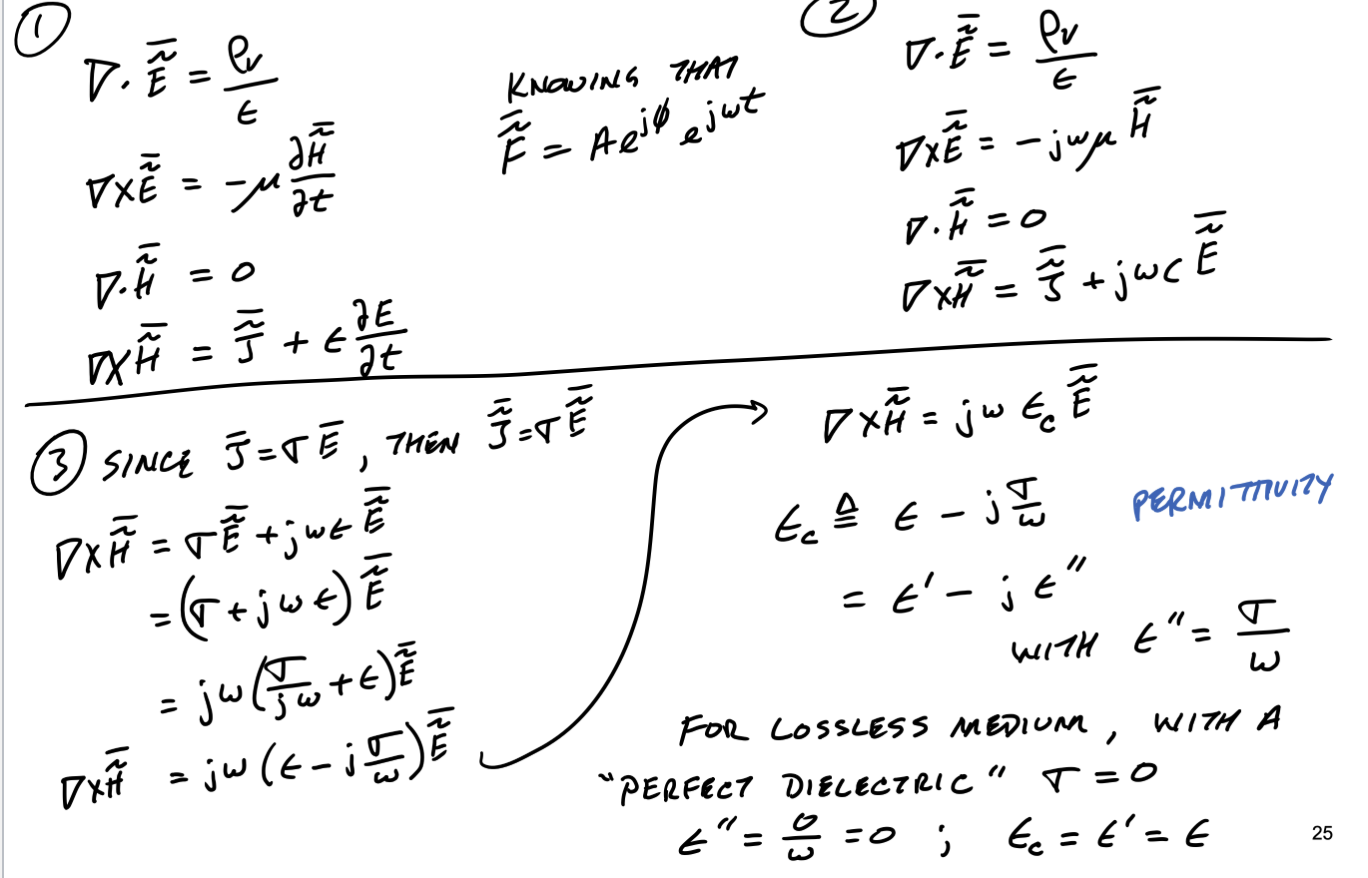 ①
∇·Ẽ̅ = ρᵥ/ϵ
∇×Ẽ̅ = -μ ∂H̃̅/∂t
∇·H̃̅ = 0
∇×H̃̅ = J̃̅ + ϵ ∂E/∂t
KNOWING THAT
F̃̅ = Ae^{jϕ} e^{jωt}
②
∇·Ẽ̅ = ρᵥ/ϵ
∇×Ẽ̅ = -jωμ H̃̅
∇·H̃̅ = 0
∇×H̃̅ = J̃̅ + jωϵ Ẽ̅
③ SINCE J̅=σE̅, THEN J̃̅=σẼ̅
∇×H̃̅ = σẼ̅ + jωϵ Ẽ̅
= (σ + jωϵ) Ẽ̅
= jω(σ/jω + ϵ)Ẽ̅
∇×H̃̅ = jω(ϵ - j σ/ω)Ẽ̅
∇×H̃̅ = jω ϵ_c Ẽ̅
ϵ_c ≜ ϵ - j σ/ω PERMITTIVITY
= ϵ' - jϵ"
WITH ϵ" = σ/ω
FOR LOSSLESS MEDIUM, WITH A
"PERFECT DIELECTRIC" σ = 0
ϵ" = 0/ω = 0 ; ϵ_c = ϵ' = ϵ
25